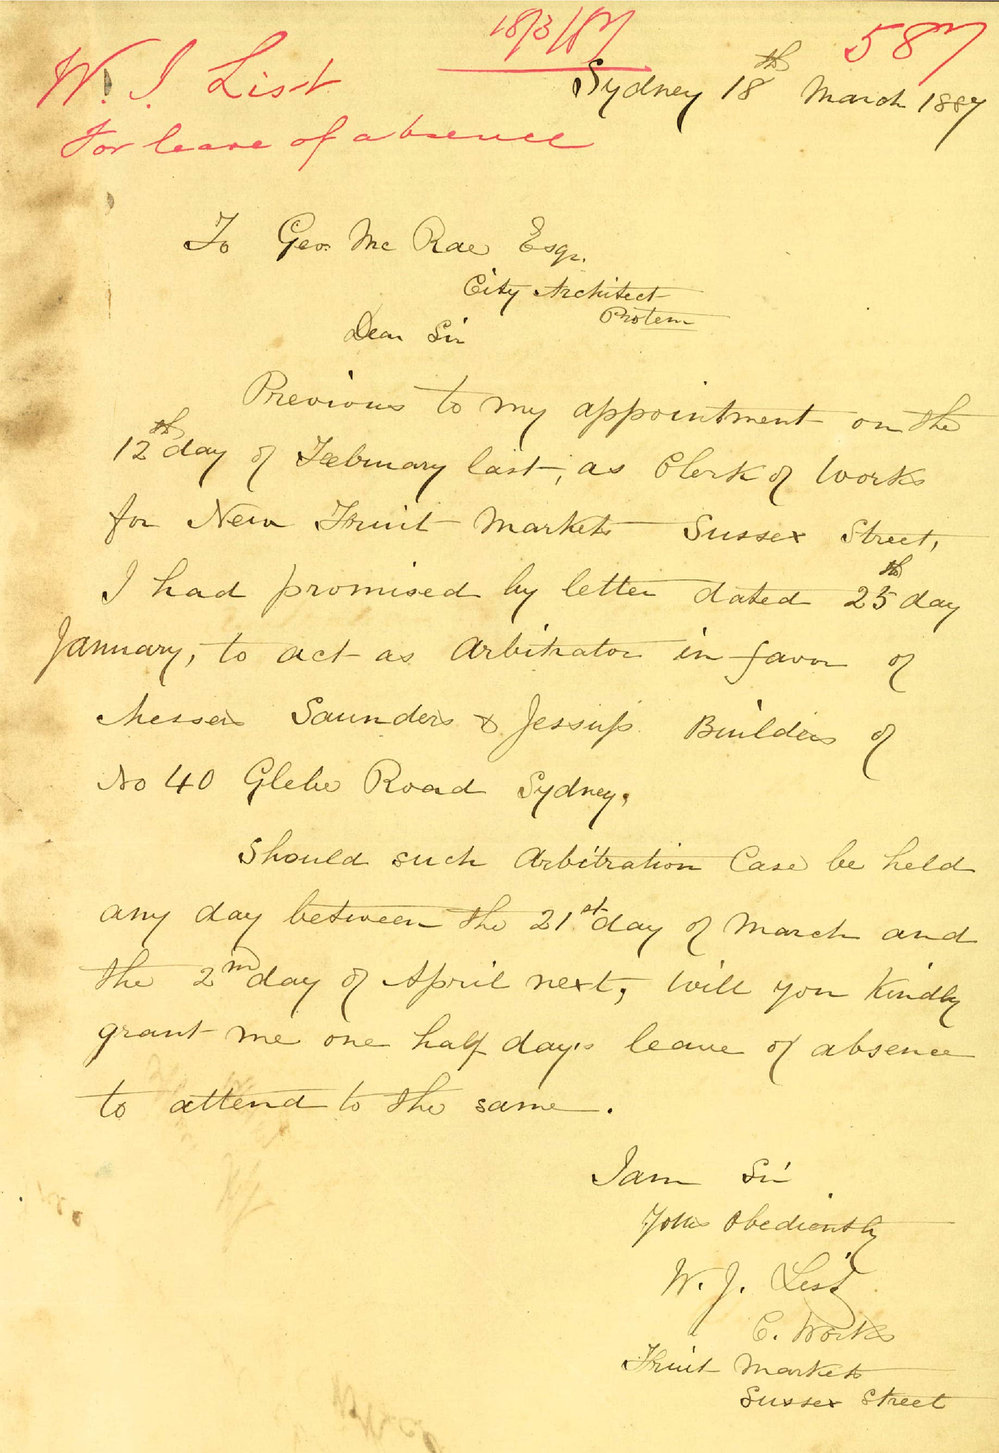 18/3/87
587
W. J. List
For leave of absence
Sydney 18th March 1887
To Geo. Mc Rae Esqr.
City Architect
Protem
Dear Sir
Previous to my appointment on the
12th day of Febuary last, as Clerk of Works
for New Fruit Markets Sussex Street,
I had promised by letter dated 25th day
January, to act as Arbitrator in favor of
Messers Saunders & Jessup. Builders of
No 40 Glebe Road Sydney.
Should such Arbitration Case be held
any day between the 21st day of March and
the 2nd day of April next, will you Kindly
grant me one half day's leave of absence
to attend to the same.
I am Sir
Yours Obediently
W. J. List
C. Works
Fruit Markets
Sussex Street